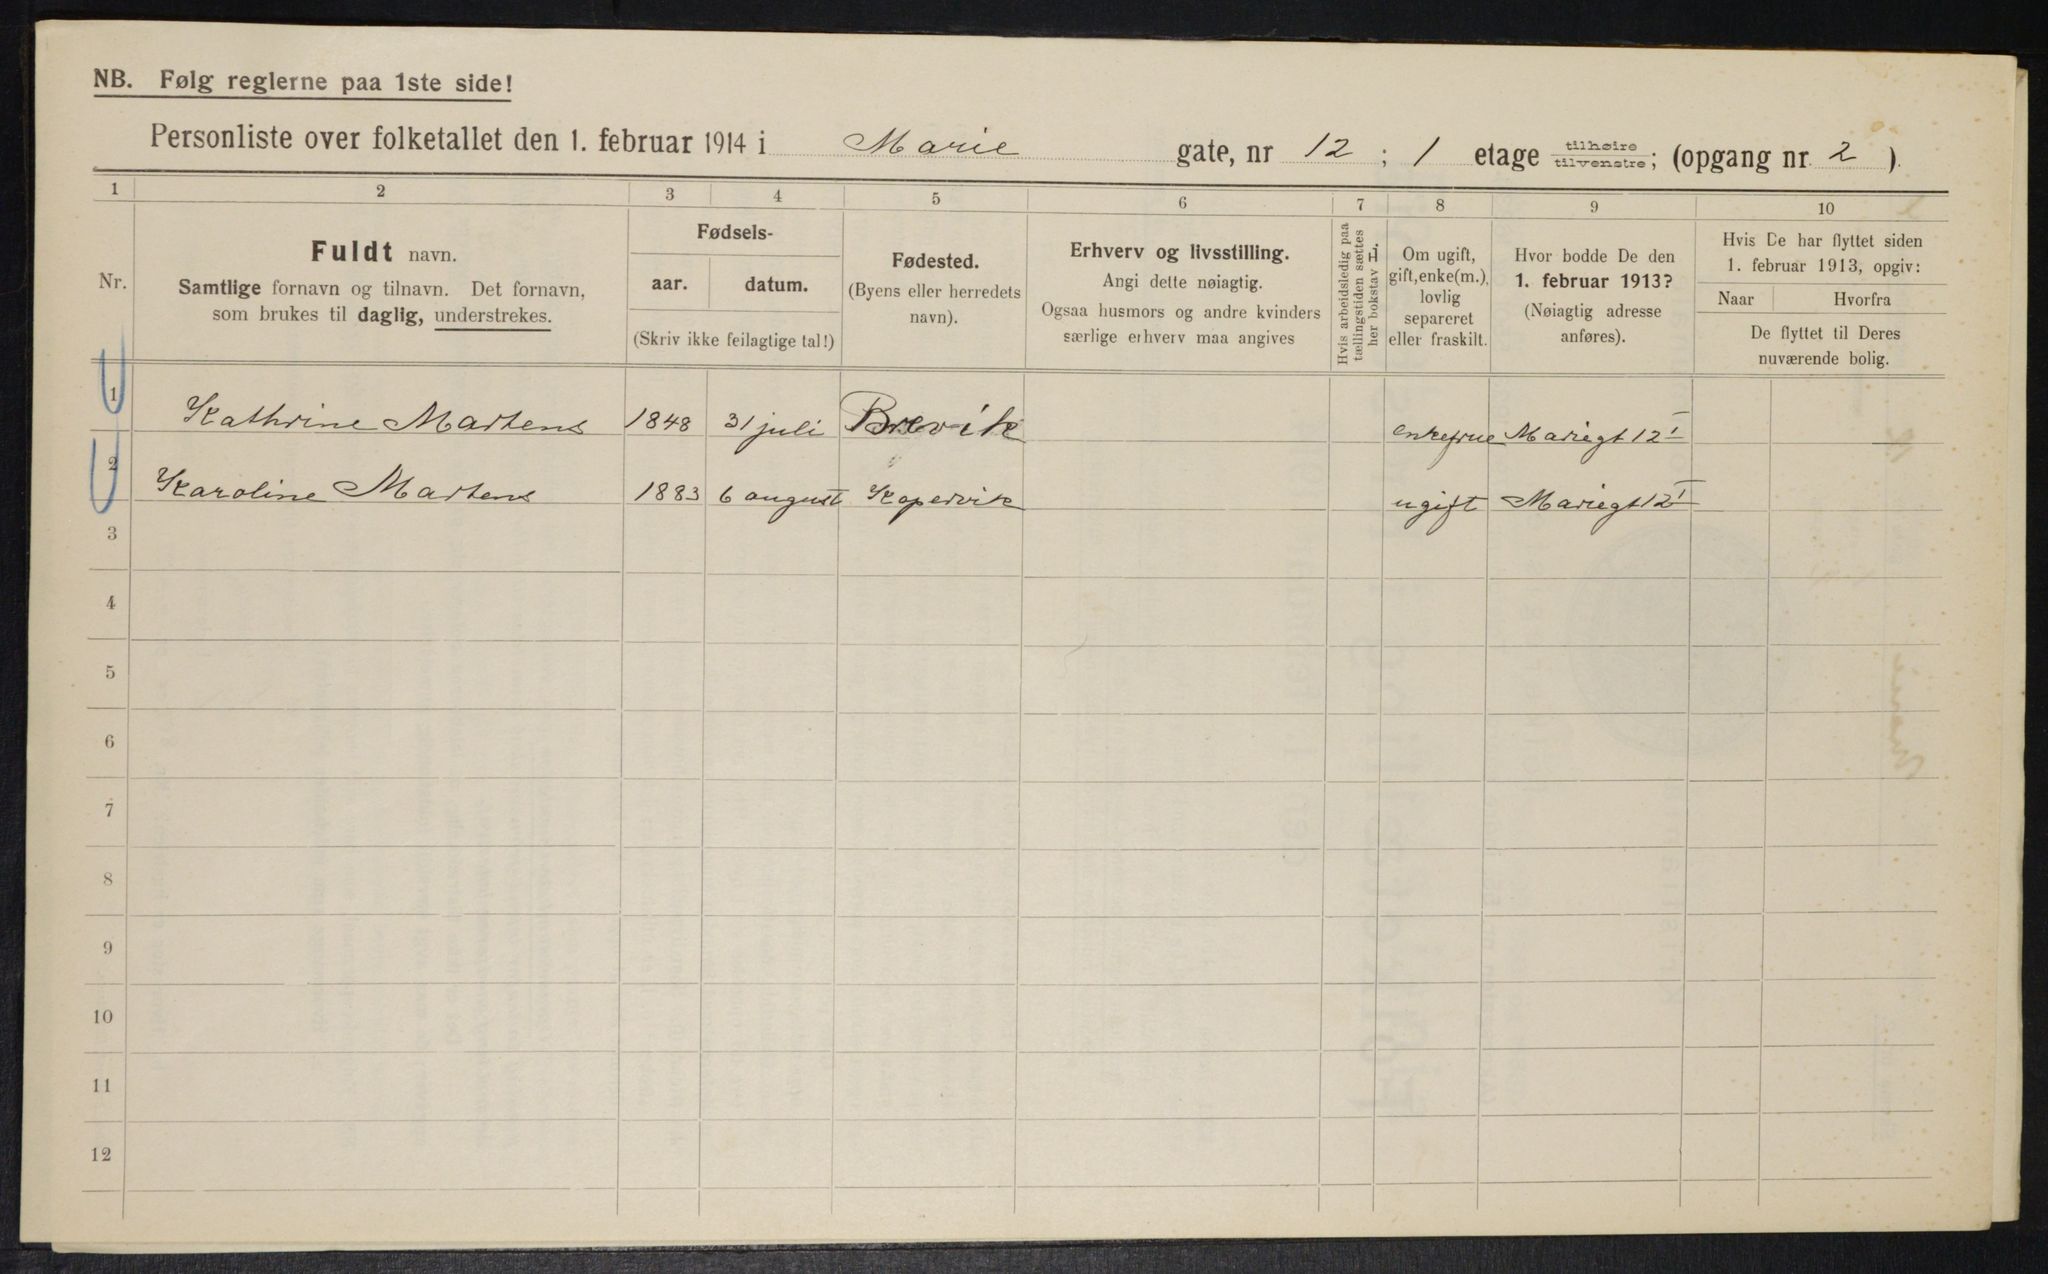 NB. Følg reglerne paa 1ste side!
Personliste over folketallet den 1. februar 1914 i Marie gate, nr 12 ; 1 etage tilhøire tilvenstre; (opgang nr. 2 ).
1 2 3 4 5 6 7 8 9 10
Nr.
Fuldt navn.
Samtlige fornavn og tilnavn. Det fornavn,
som brukes til daglig, understrekes.
Fødsels-
aar. datum.
(Skriv ikke feilagtige tal!)
Fødested.
(Byens eller herredets
navn).
Erhverv og livsstilling.
Angi dette nøiagtig.
Ogsaa husmors og andre kvinders
særlige erhverv maa angives
Hvis arbeidsledig paa
tællingstiden sættes
her bokstav L.
Om ugift,
gift, enke(m.),
lovlig
separeret
eller fraskilt.
Hvor bodde De den
1. februar 1913?
(Nøiagtig adresse
anføres).
Hvis De har flyttet siden
1. februar 1913, opgiv:
Naar Hvorfra
De flyttet til Deres
nuværende bolig.
1 Kathrine Martens 1848 31 juli Brevik enkefrue Mariegt 12 I
2 Karoline Martens 1883 6 august Kopervik ugift Mariegt 12 I
3
4
5
6
7
8
9
10
11
12